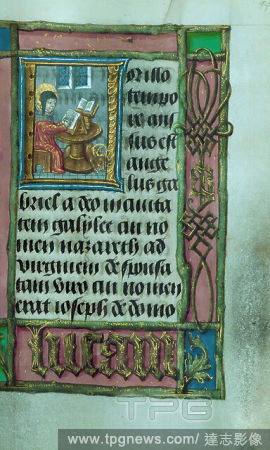 N illo
tempo
re mis
sus est
ange
lus ga
briel a deo in ciuita
tem galylee cui no
men nazareth ad
virginem desponsa
tam viro cui nomen
erat ioseph de domo
lucam
TPG
www.tpgnews.com / 達志影像